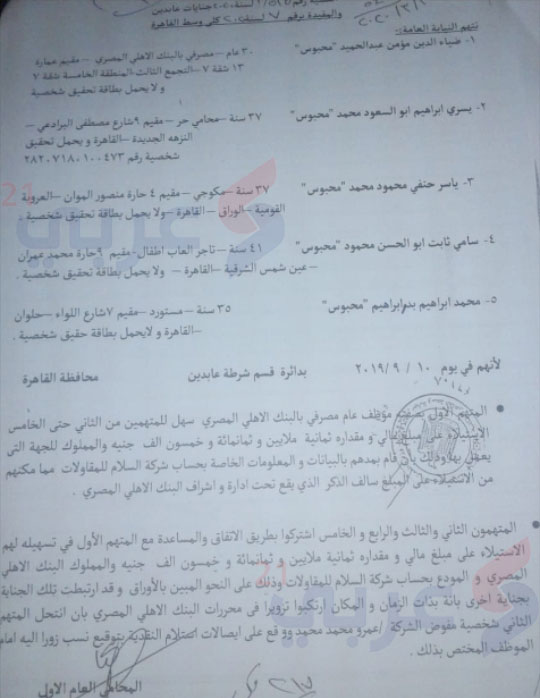 جنايات عابدين
والمقيدة برقم ٧ لسنة ٢٠٢٠ كلى وسط القاهرة
تتهم النيابة العامة:-
١- ضياء الدين مؤمن عبدالحميد "محبوس"
٣٠ عام – مصرفي بالبنك الاهلي المصري – مقيم عمارة
١٣ شقة ٧ – التجمع الثالث المنطقة الخامسة شقة ٧
و لا يحمل بطاقة تحقيق شخصية
٢- يسري ابراهيم ابو السعود محمد "محبوس"
٣٧ سنة – محامي حر – مقيم ٩ شارع مصطفى البرادعي –
النزهه الجديدة – القاهرة و يحمل تحقيق
شخصية رقم ٢٨٢٠٧١٨٠١٠٠٤٧٣
٣- ياسر حنفي محمود محمد "محبوس"
٣٧ سنة – مكوجي – مقيم ٤ حارة منصور الموان – العروبة
القومية – الوراق – القاهرة – ولا يحمل بطاقة تحقيق شخصية .
٤- سامي ثابت ابو الحسن محمود "محبوس"
٤١ سنة – تاجر العاب اطفال – مقيم ٩ حارة محمد عمران
– عين شمس الشرقية – القاهرة – ولا يحمل بطاقة تحقيق شخصية .
٥- محمد ابراهيم بدر ابراهيم "محبوس"
٣٥ سنة – مستورد – مقيم ٧ شارع اللواء – حلوان
– القاهرة و لا يحمل بطاقة حقيق شخصية .
لأنهم في يوم ١٠ / ٩ / ٢٠١٩ بدائرة قسم شرطة عابدين محافظة القاهرة
• المتهم الأول بصفته موظف عام مصرفي بالبنك الاهلي المصري سهل للمتهمين من الثاني حتى الخامس
الاستيلاء على مبلغ مالي و مقداره ثمانية ملايين و ثمانمائة و خمسون الف جنيه والمملوك للجهة التى
يعمل بها وذلك بان قام بمدهم بالبيانات و المعلومات الخاصة بحساب شركة السلام للمقاولات مما مكنهم
من الاستيلاء على المبلغ سالف الذكر الذي يقع تحت ادارة و اشراف البنك الاهلي المصري .
• المتهمون الثاني والثالث والرابع و الخامس اشتركوا بطريق الاتفاق والمساعدة مع المتهم الأول في تسهيله لهم
الاستيلاء على مبلغ مالي و مقداره ثمانية ملايين و ثمانمائة و خمسون الف جنيه والمملوك البنك الاهلي
المصري و المودع بحساب شركة السلام للمقاولات وذلك على النحو المبين بالأوراق و قد ارتبطت تلك الجناية
بجناية اخرى بانة بذات الزمان و المكان ارتكبوا تزويرا في محررات البنك الاهلي المصري بان انتحل المتهم
الثاني شخصية مفوض الشركة /عمرو محمد محمد ووقع على ايصالات استلام النقدية بتوقيع نسب زورا اليه امام
الموظف المختص بذلك .
المحامي العام الاول
عربي 21
عربي 21